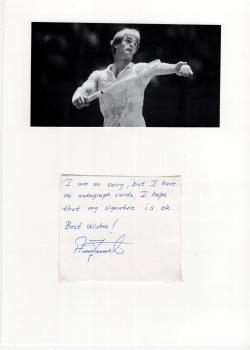 I am so sorry, but I have
no autograph cards. I hope
that my signature is ok.
Best Wishes!